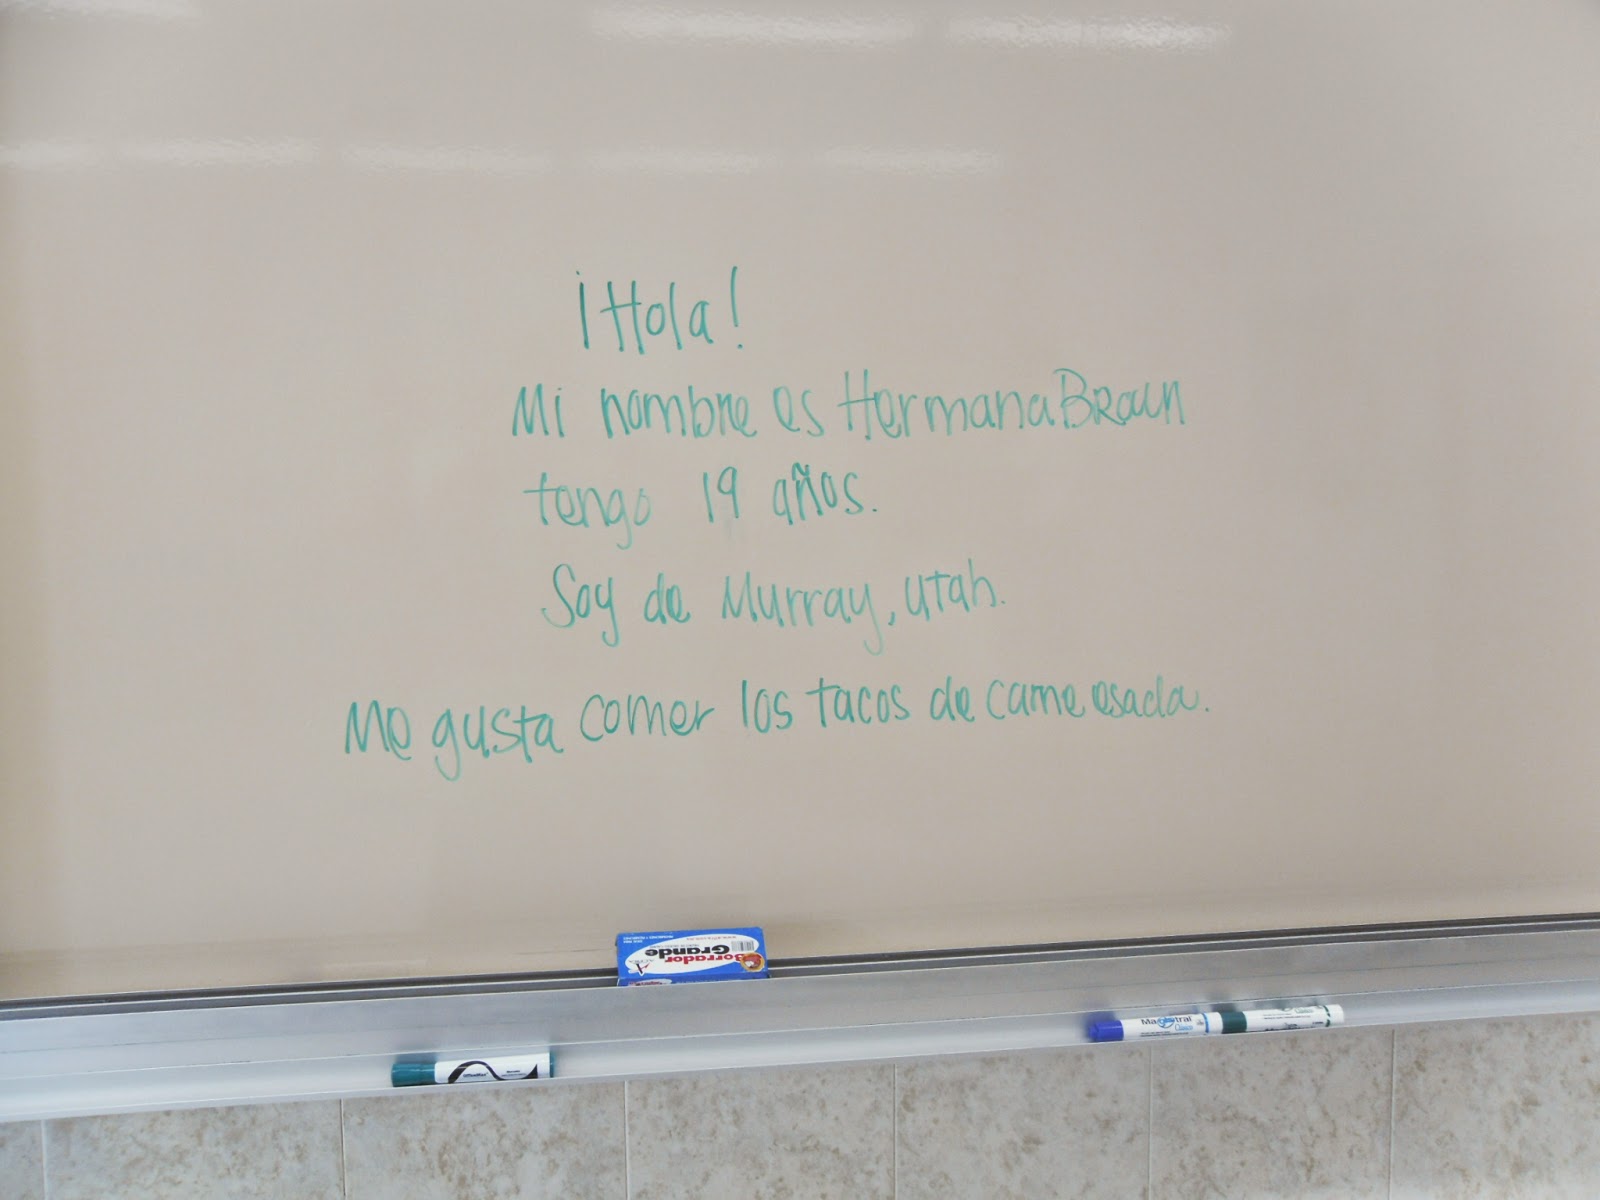 ¡Hola!
Mi nombre es Hermana Braun
tengo 19 años.
Soy de Murray, Utah.
Me gusta comer los tacos de carne esada.
Borrador
Grande
Magistral